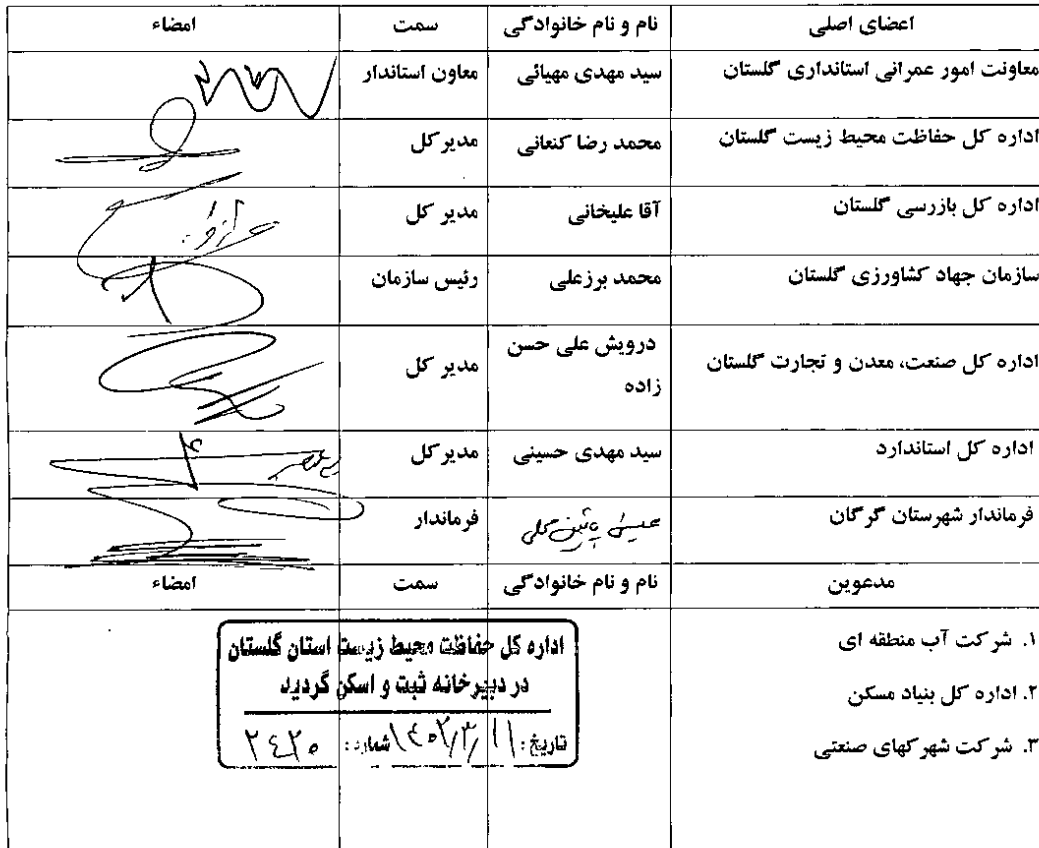 اعضای اصلی نام و نام خانوادگی سمت امضاء
معاونت امور عمرانی استانداری گلستان سید مهدی مهیائی معاون استاندار
اداره کل حفاظت محیط زیست گلستان محمد رضا کنعانی مدیر کل
اداره کل بازرسی گلستان آقا علیخانی مدیر کل
سازمان جهاد کشاورزی گلستان محمد برزعلی رئیس سازمان
اداره کل صنعت، معدن و تجارت گلستان درویش علی حسن زاده مدیر کل
اداره کل استاندارد سید مهدی حسینی مدیر کل
فرماندار شهرستان گرگان فرماندار
مدعوین نام و نام خانوادگی سمت امضاء
۱. شرکت آب منطقه ای
۲. اداره کل بنیاد مسکن
۳. شرکت شهرکهای صنعتی
اداره کل حفاظت محیط زیست استان گلستان
در دبیرخانه ثبت و اسکن گردید
تاریخ: ۱۴۰۲/۳/۱۱ شماره: ۲۴۲۰